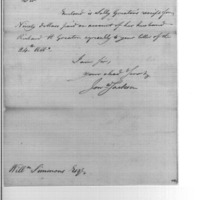 Sir
Enclosed is Sally Gunston's receipt for
Ninety dollars paid on account of her husband
Richard H Gunston agreeably to your letter of the
24th Ulto.
I am Sir,
Your obed. Serv.
Jon. Jackson
Willm. Simmons Esqr.